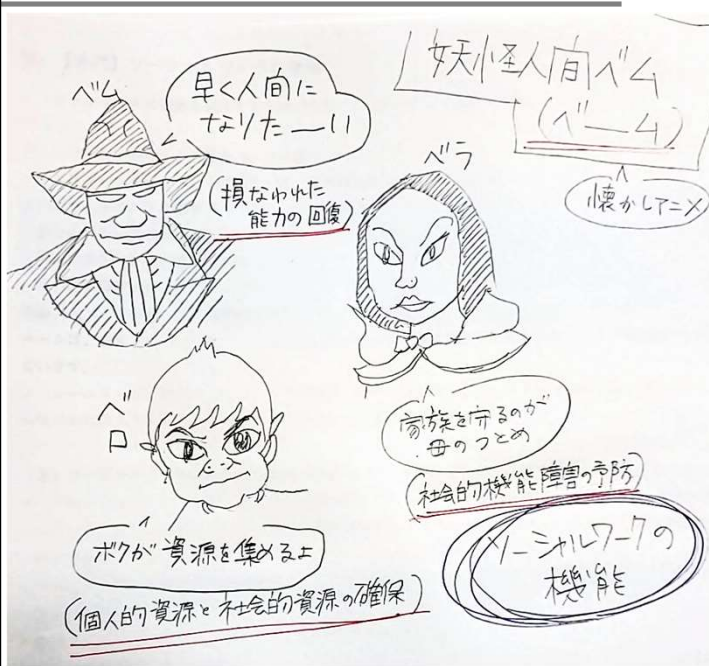 妖怪人間ベム
(ベーム)
懐かしアニメ
ベム
早く人間に
なりたーい
(損なわれた
能力の回復)
ベラ
家族を守るのが
母のつとめ
(社会的機能障害の予防)
ベロ
ボクが資源を集めるよ
(個人的資源と社会的資源の確保)
ソーシャルワークの
機能